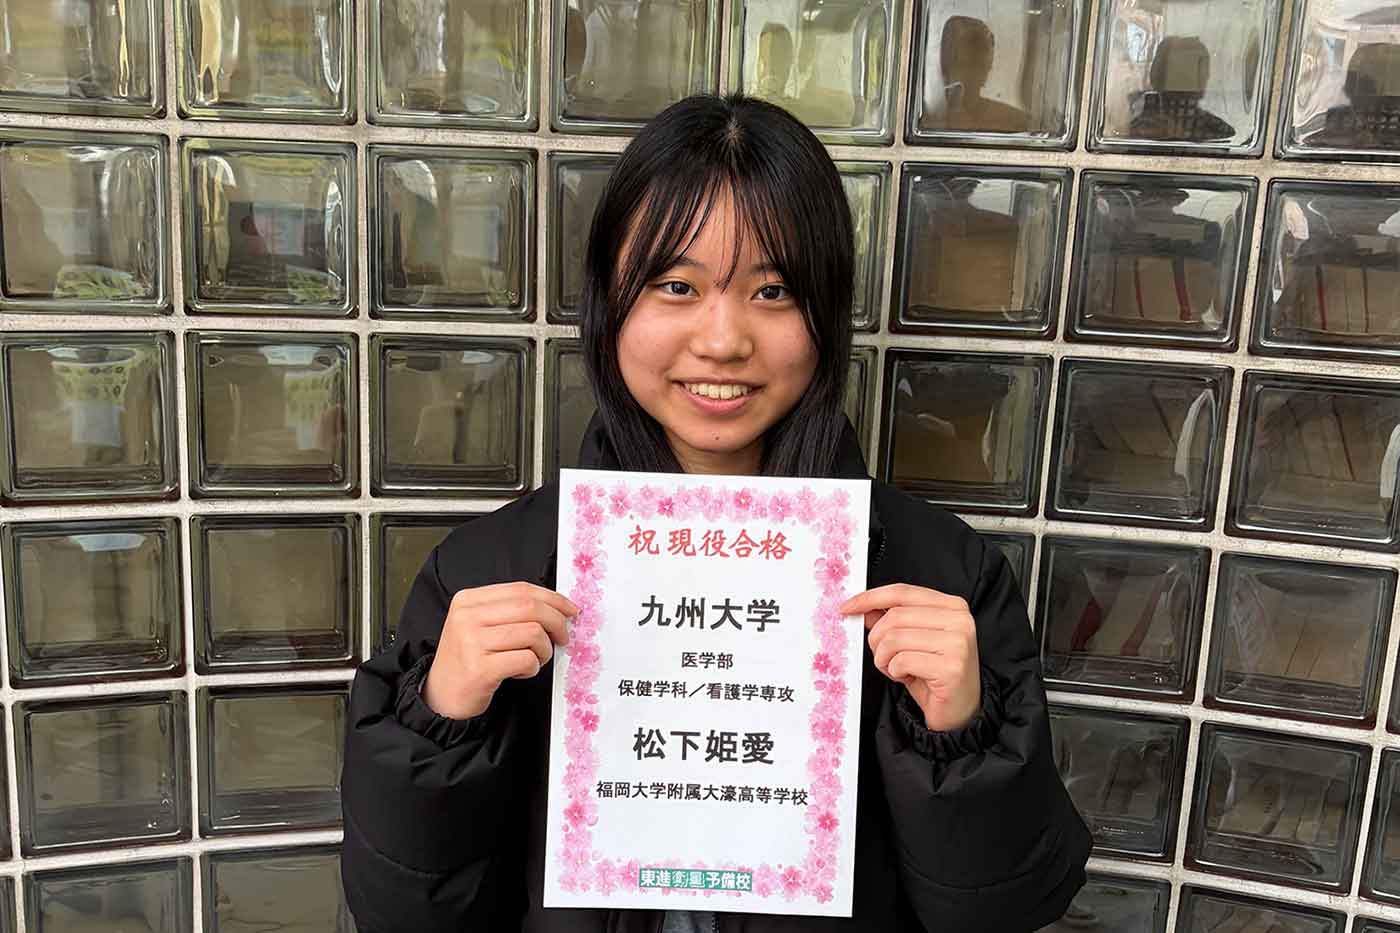 祝 現役合格
九州大学
医学部
保健学科／看護学専攻
松下姫愛
福岡大学附属大濠高等学校
東進衛星予備校